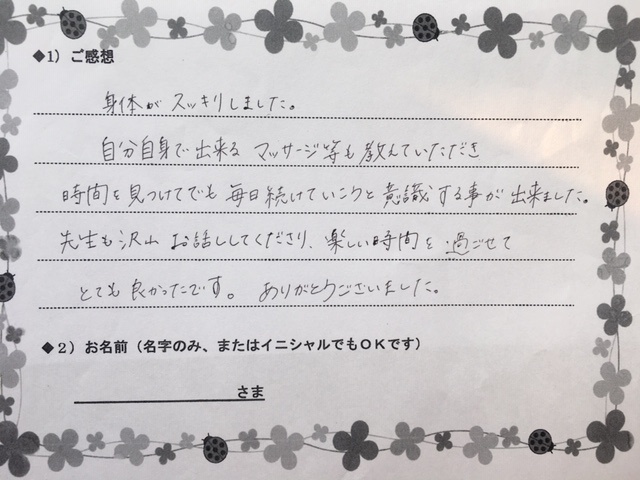 ◆1）ご感想
身体がスッキリしました。
自分自身で出来るマッサージ等も教えていただき
時間を見つけてでも毎日続けていこうと意識する事が出来ました。
先生も沢山お話ししてくださり、楽しい時間を過ごせて
とても良かったです。ありがとうございました。
◆2）お名前（名字のみ、またはイニシャルでもＯＫです）
さま